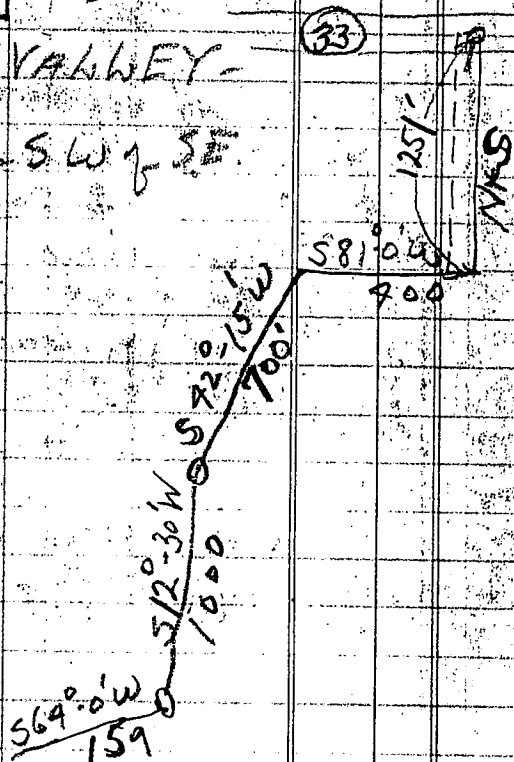 33
VALLEY-
SW of SE
125'
N&S
S81°0'W
400
S42°,15'W
700'
S12°-30'W
1000
S64°-0'W
159